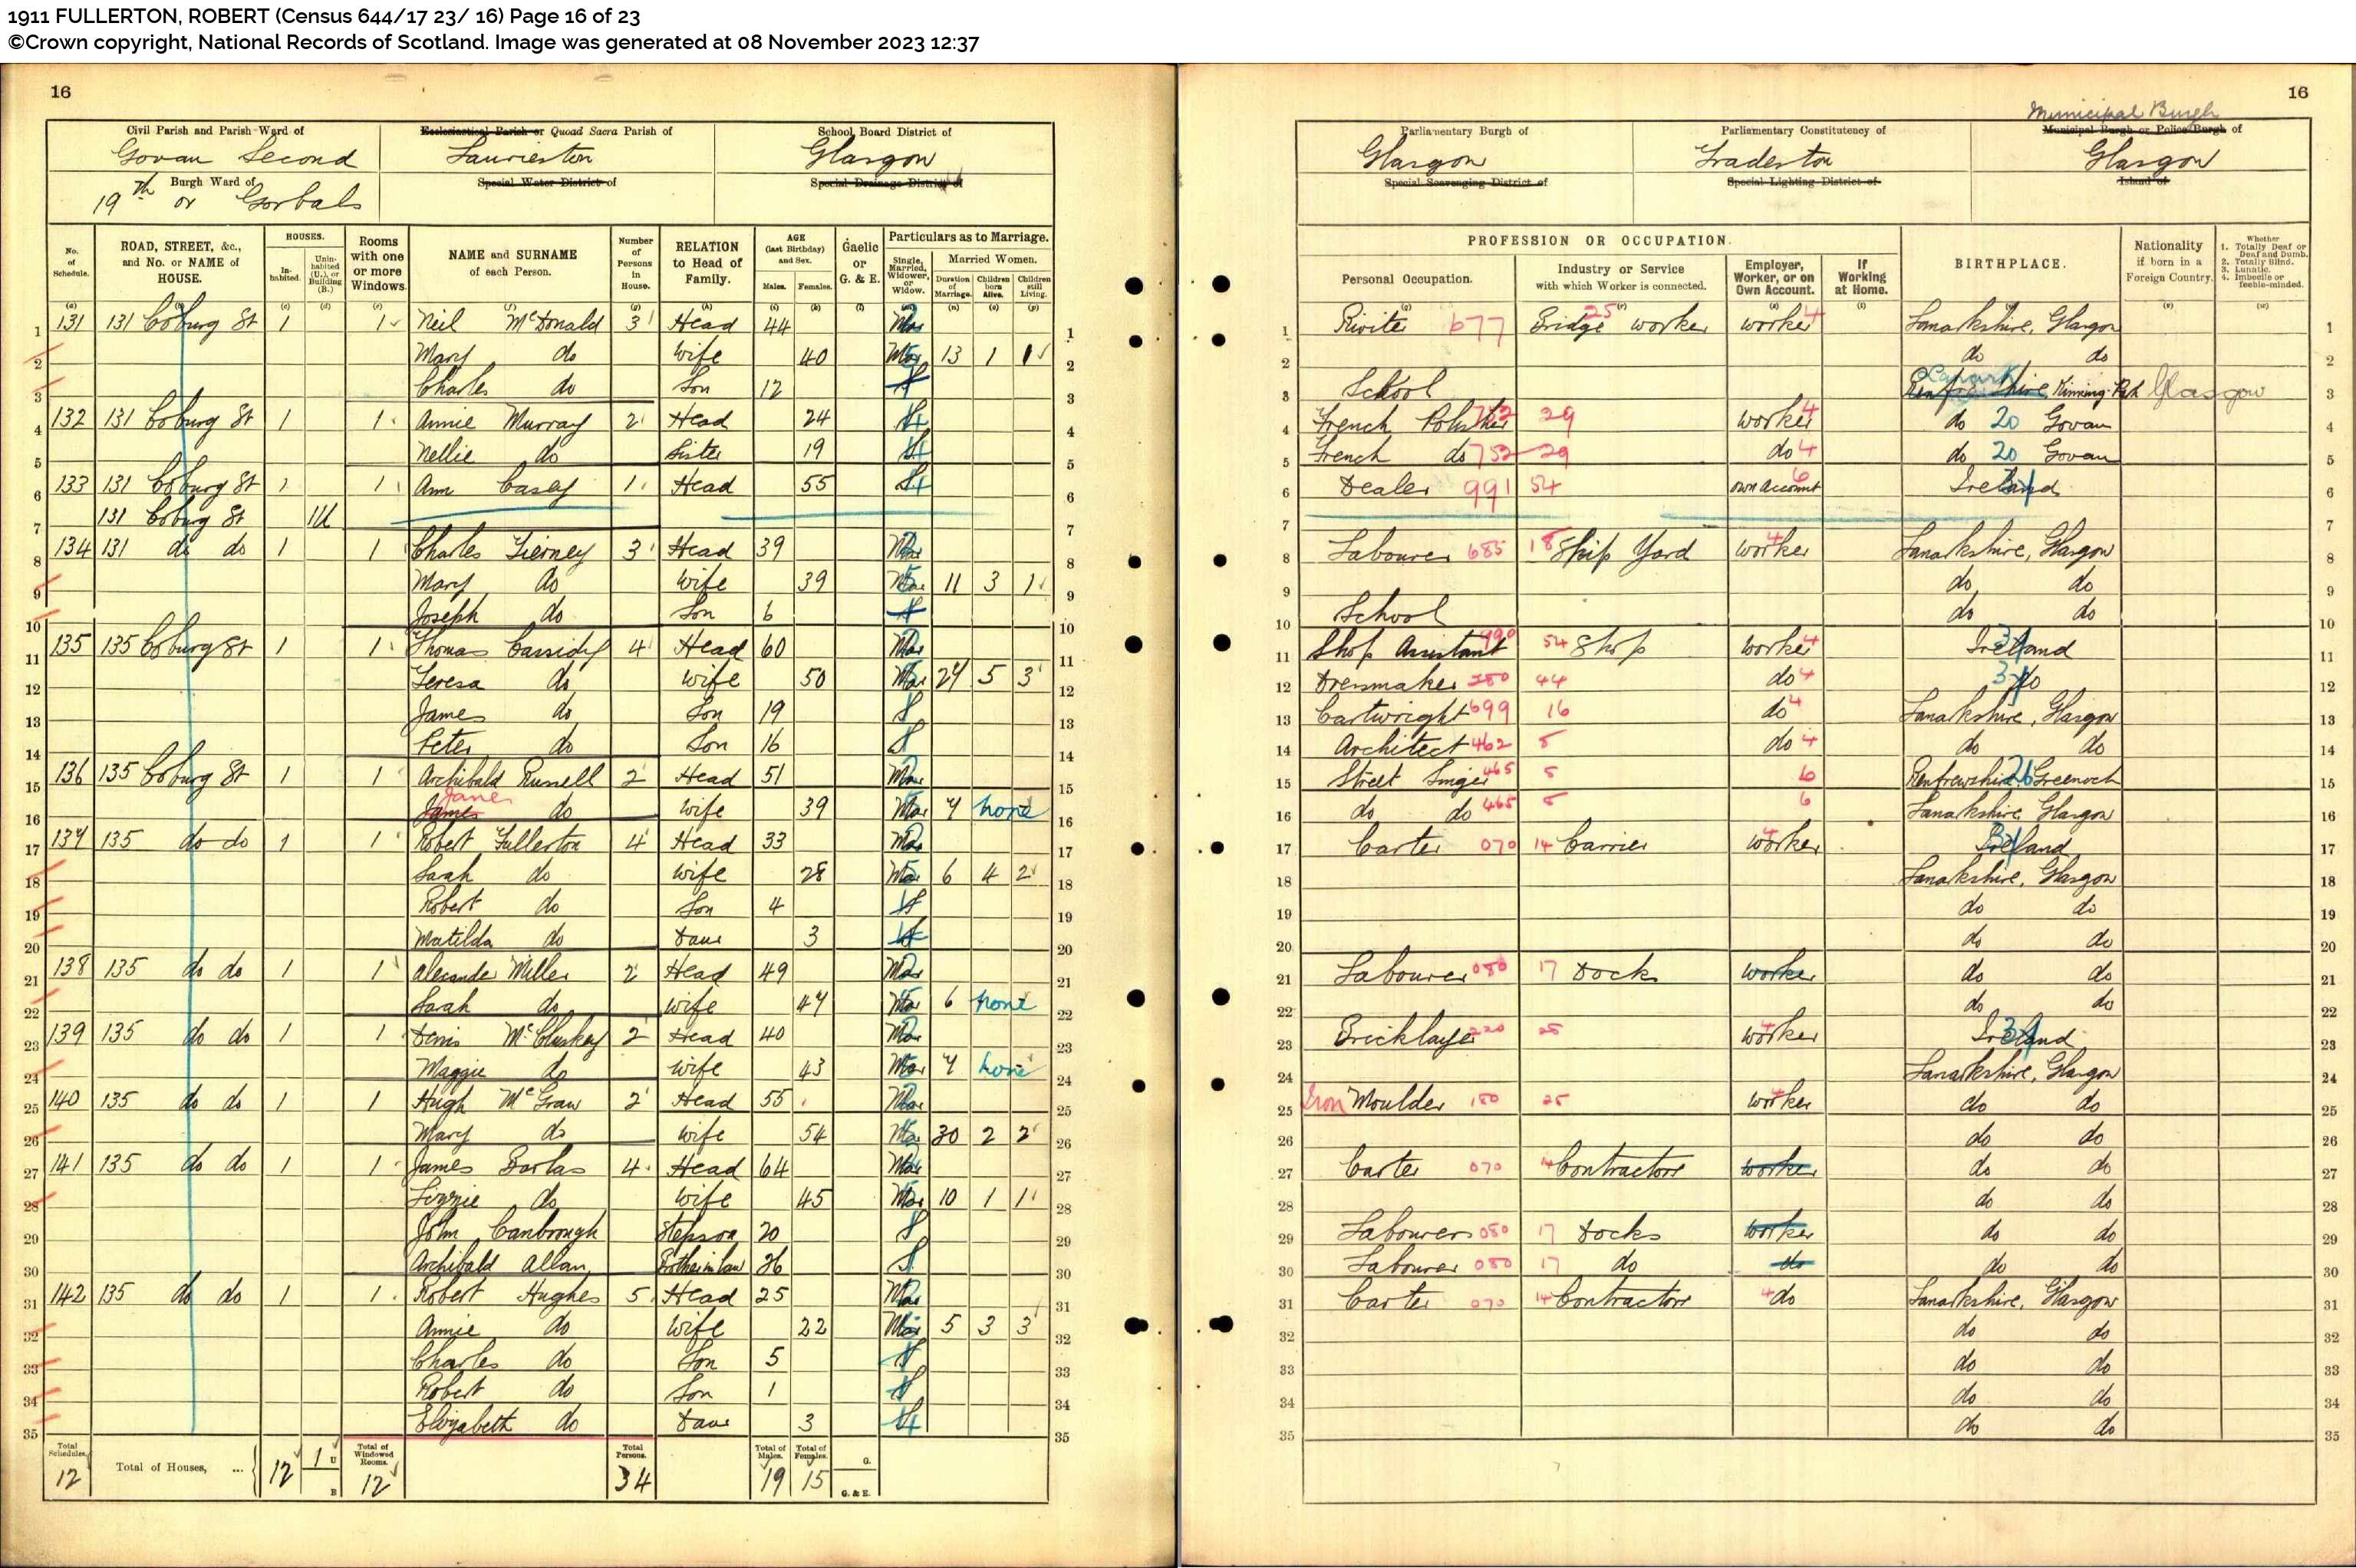 1911 FULLERTON, ROBERT (Census 644/17 23/ 16) Page 16 of 23
©Crown copyright, National Records of Scotland. Image was generated at 08 November 2023 12:37
16
Civil Parish and Parish Ward of Govan Second
Ecclesiastical Parish or Quoad Sacra Parish of Laurieston
School Board District of Glasgow
Burgh Ward of 19th or Gorbals
Special Water District of
Special Drainage District of
No. of Schedule.
ROAD, STREET, &c., and No. or NAME of HOUSE.
HOUSES.
In-habited.
Unin-habited (U.), or Building (B.)
Rooms with one or more Windows.
NAME and SURNAME of each Person.
Number of Persons in House.
RELATION to Head of Family.
AGE (last Birthday) and Sex.
Males.
Females.
Gaelic or G. & E.
Particulars as to Marriage.
Single, Married, Widower, or Widow.
Married Women.
Duration of Marriage.
Children born Alive.
Children still Living.
1 131 131 Coburg St 1 1 Neil McDonald 3 Head 44 Mar 1
2 Mary do Wife 40 Mar 13 1 1 2
3 Charles do Son 12 S 3
4 132 131 Coburg St 1 1 Annie Murray 2 Head 24 S 4
5 Nellie do Sister 19 S 5
6 133 131 Coburg St 1 1 Ann Casey 1 Head 55 S 6
7 131 Coburg St 1U 7
8 134 131 do do 1 1 Charles Tierney 3 Head 39 Mar 8
9 Mary do Wife 39 Mar 11 3 1 9
10 Joseph do Son 6 S 10
11 135 135 Coburg St 1 1 Thomas Cassidy 4 Head 60 Mar 11
12 Teresa do Wife 50 Mar 27 5 3 12
13 James do Son 19 S 13
14 Peter do Son 16 S 14
15 136 135 Coburg St 1 1 Archibald Russell 2 Head 51 Mar 15
16 James Jane do Wife 39 Mar 7 none 16
17 137 135 do do 1 1 Robert Fullerton 4 Head 33 Mar 17
18 Sarah do Wife 28 Mar 6 4 2 18
19 Robert do Son 4 S 19
20 Matilda do Daur 3 S 20
21 138 135 do do 1 1 Alexander Miller 2 Head 49 Mar 21
22 Sarah do Wife 47 Mar 6 none 22
23 139 135 do do 1 1 Denis McCluskey 2 Head 40 Mar 23
24 Maggie do Wife 43 Mar 7 none 24
25 140 135 do do 1 1 Hugh McGraw 2 Head 55 Mar 25
26 Mary do Wife 54 Mar 30 2 2 26
27 141 135 do do 1 1 James 4 Head 64 Mar 27
28 Lizzie do Wife 45 Mar 10 1 1 28
29 John Stepson 20 S 29
30 Archibald Allan Brother in law 36 S 30
31 142 135 do do 1 1 Robert Hughes 5 Head 25 Mar 31
32 Annie do Wife 22 Mar 5 3 3 32
33 Charles do Son 5 S 33
34 Robert do Son 1 S 34
35 Elizabeth do Daur 3 S 35
Total Schedules, 12
Total of Houses, ... 12 1 U B
Total of Windowed Rooms. 12
Total Persons. 34
Total of Males. 19
Total of Females. 15
G.
G. & E.
16
Parliamentary Burgh of Glasgow
Parliamentary Constitutency of Tradeston
Municipal Burgh
Municipal Burgh or Police Burgh of Glasgow
Special Scavenging District of
Special Lighting District of
Island of
PROFESSION OR OCCUPATION.
Personal Occupation.
Industry or Service with which Worker is connected.
Employer, Worker, or on Own Account.
If Working at Home.
BIRTHPLACE.
Nationality if born in a Foreign Country.
Whether 1. Totally Deaf or Deaf and Dumb. 2. Totally Blind. 3. Lunatic. 4. Imbecile or feeble-minded.
1 Riviter 677 Bridge worker 25 worker 4 Lanarkshire, Glasgow 1
2 do do 2
3 School Renfrewshire Lanark Kinning Park Glasgow 3
4 French Polisher 752 29 worker 4 do 20 Govan 4
5 French do 752 29 do 4 do 20 Govan 5
6 Dealer 991 54 own account 6 Ireland 6
7 7
8 Labourer 685 18 Ship Yard worker 4 Lanarkshire, Glasgow 8
9 do do 9
10 School do do 10
11 Shop Assistant 990 54 Shop worker 4 Ireland 11
12 Dressmaker 280 44 do 4 do 12
13 Cartwright 699 16 do 4 Lanarkshire, Glasgow 13
14 Architect 462 5 do 4 do do 14
15 Street Singer 465 5 6 Renfrewshire 26 Greenock 15
16 do do 465 5 6 Lanarkshire Glasgow 16
17 Carter 070 14 Carrier worker 4 Ireland 17
18 Lanarkshire, Glasgow 18
19 do do 19
20 do do 20
21 Labourer 080 17 Docks worker do do 21
22 do do 22
23 Bricklayer 220 25 worker 4 Ireland 23
24 Lanarkshire, Glasgow 24
25 Iron Moulder 180 25 worker 4 do do 25
26 do do 26
27 Carter 070 14 Contractors worker do do 27
28 do do 28
29 Labourer 080 17 Docks worker do do 29
30 Labourer 080 17 do do do do 30
31 Carter 070 14 Contractors 4 do Lanarkshire, Glasgow 31
32 do do 32
33 do do 33
34 do do 34
35 do do 35